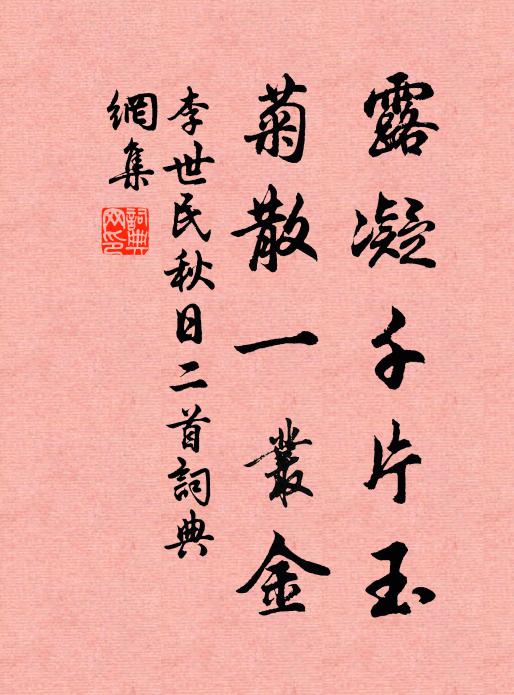 露凝千片玉
菊散一叢金
李世民秋日二首詞典
網集
詞典
网印